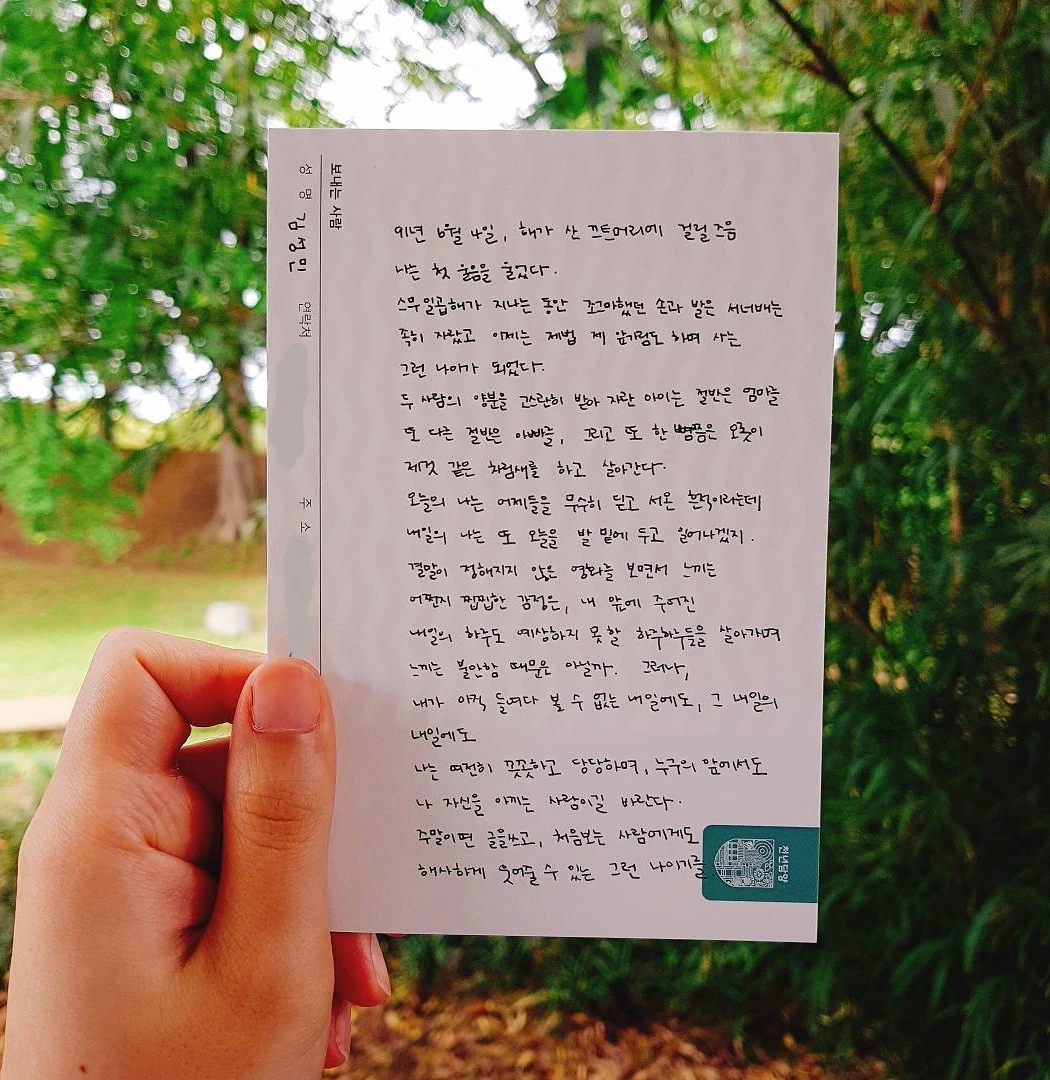 보내는 사람
성 명 김성민 연락처 주 소
91년 6월 4일, 해가 산 끄트머리에 걸릴 즈음
나는 첫 울음을 울었다.
스무일곱해가 지나는 동안 조그마했던 손과 발은 서너배는
족히 자랐고 이제는 제법 제 앞가림도 하며 사는
그런 나이가 되었다.
두 사람의 양분을 고스란히 받아 자란 아이는 절반은 엄마를
또 다른 절반은 아빠를, 그리고 또 한 뼘쯤은 오롯이
제것 같은 차림새를 하고 살아간다.
오늘의 나는 어제들을 무수히 딛고 서온 흔적이라는데
내일의 나는 또 오늘을 발 밑에 두고 일어나겠지.
결말이 정해지지 않은 영화를 보면서 느끼는
어쩐지 찝찝한 감정은, 내 앞에 주어진
내일의 하루도 예상하지 못할 하루하루들을 살아가며
느끼는 불안함 때문은 아닐까. 그러나,
내가 아직 들여다 볼 수 없는 내일에도, 그 내일의
내일에도
나는 여전히 꼿꼿하고 당당하며, 누구의 앞에서도
나 자신을 아끼는 사람이길 바란다.
주말이면 글을쓰고, 처음보는 사람에게도
해사하게 웃어줄 수 있는 그런 나이기를
천년담양